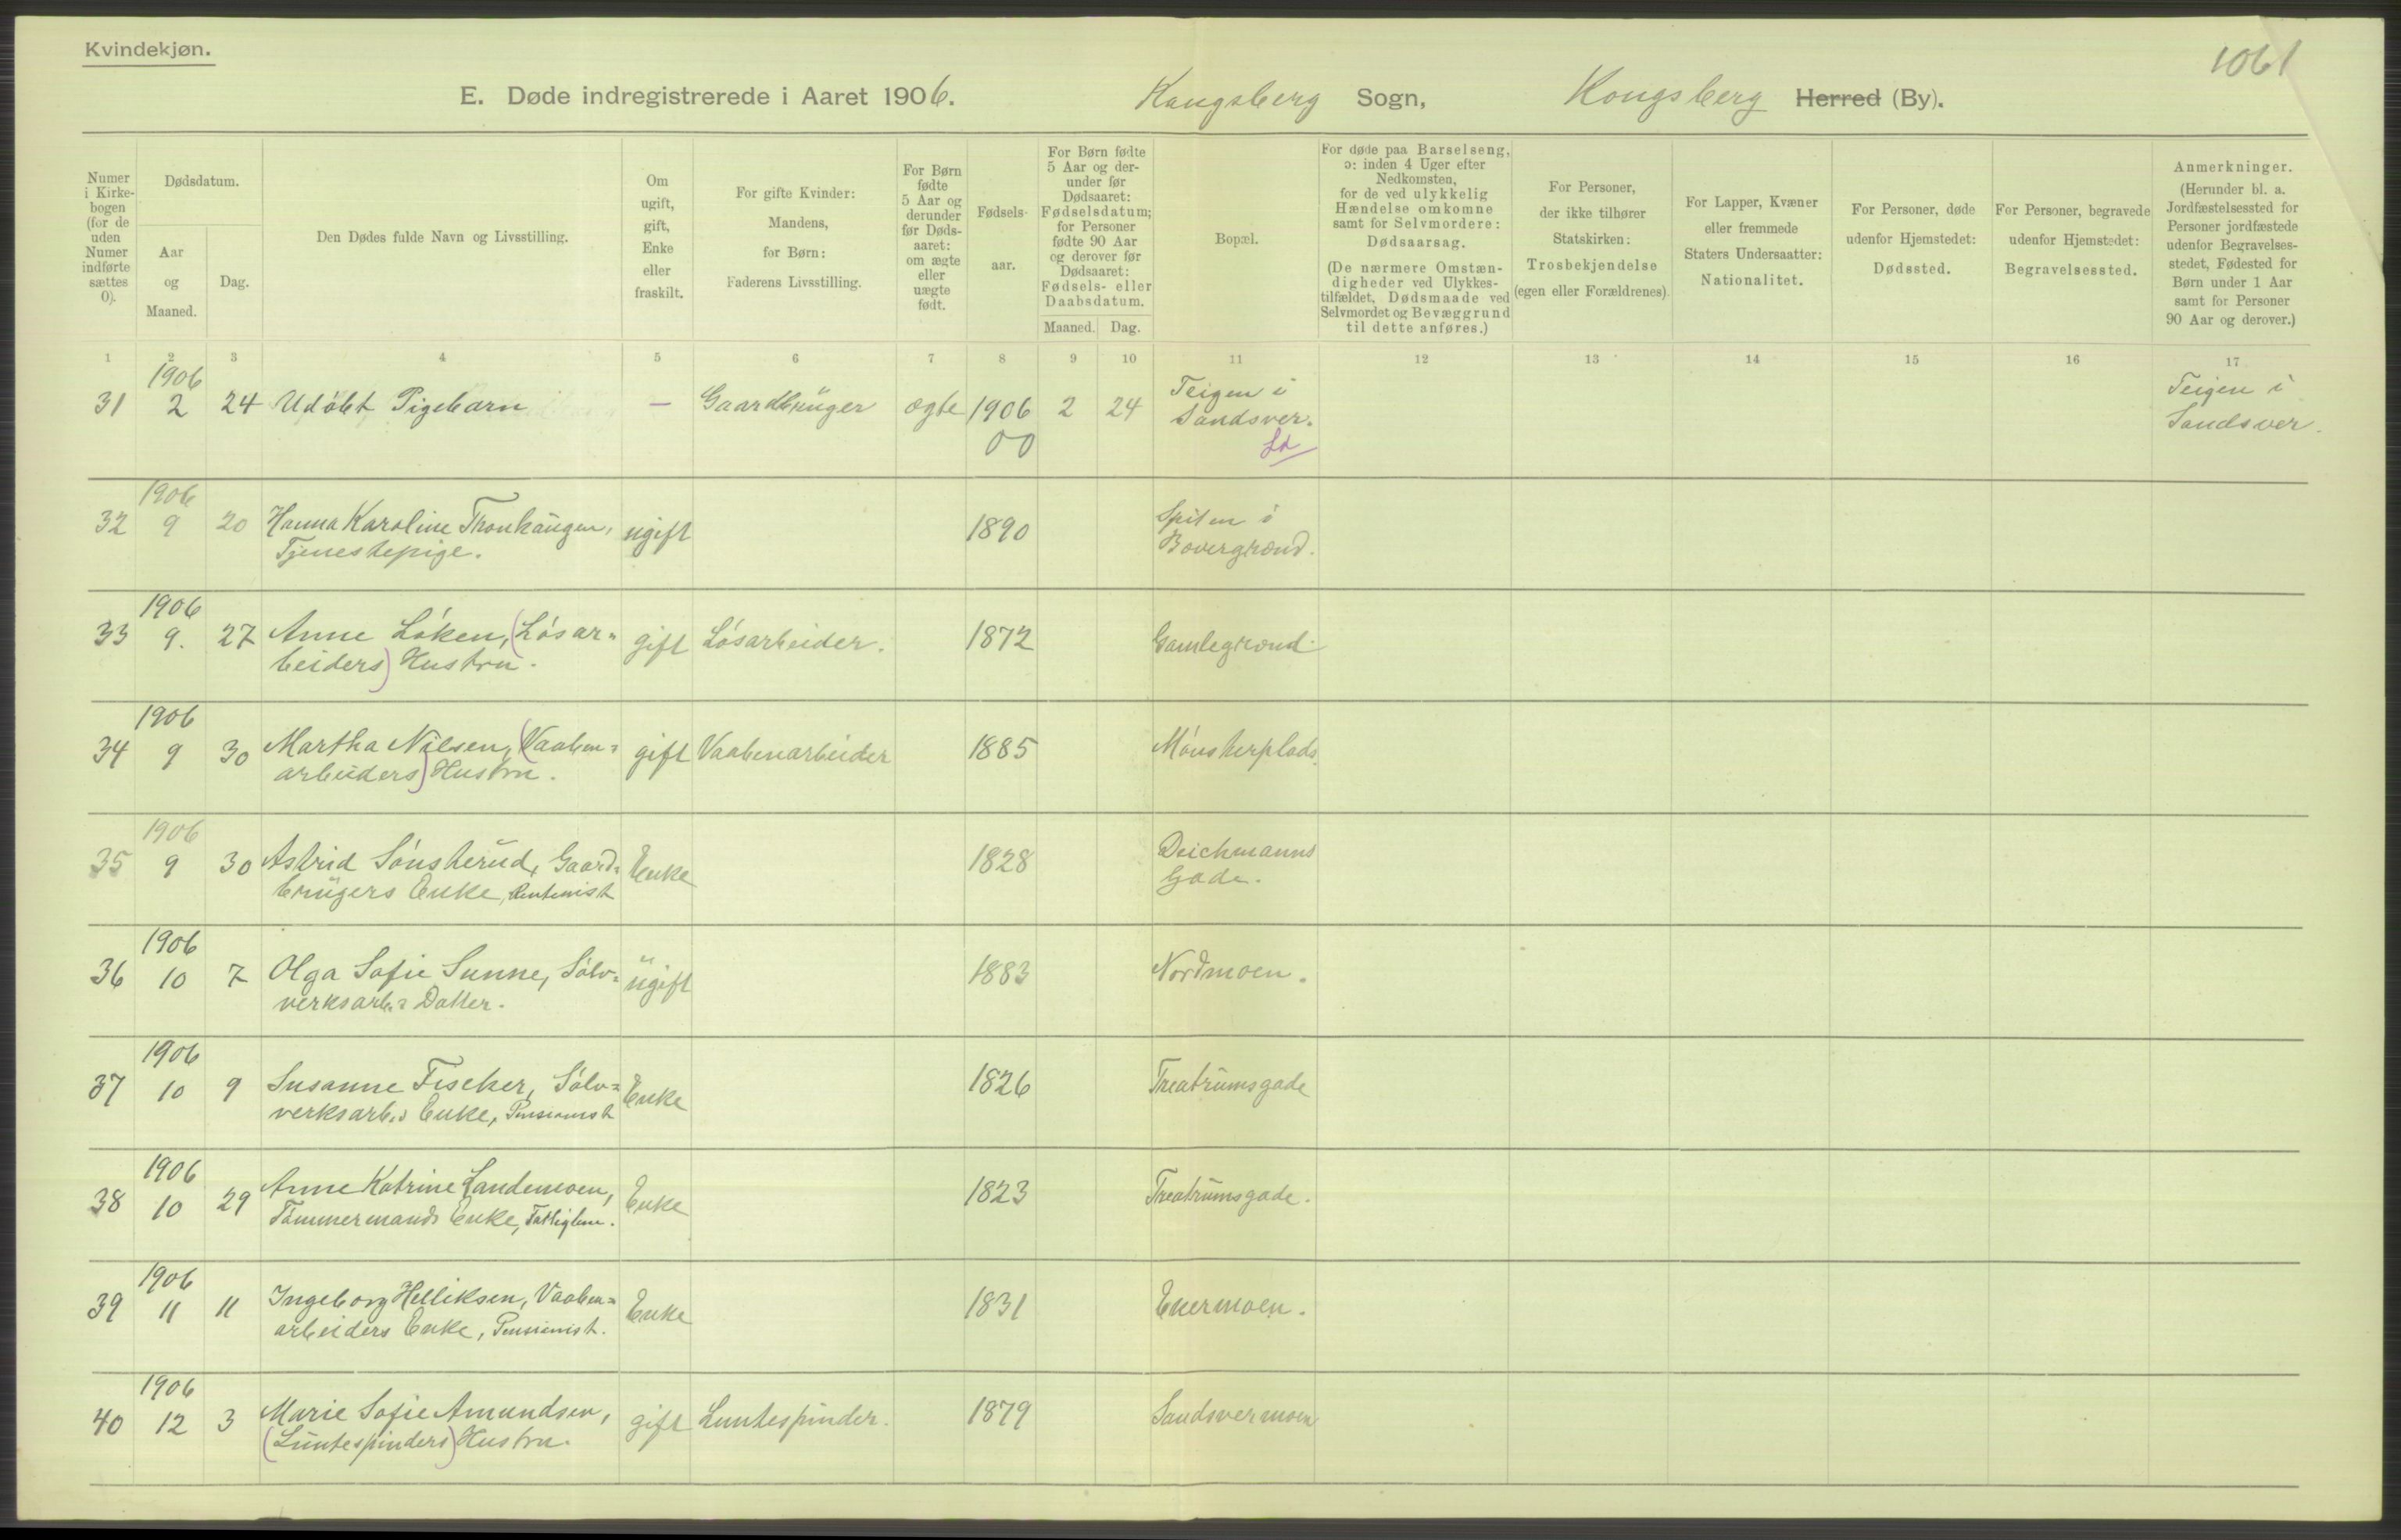 Kvindekjøn.
1061
E. Døde indregistrerede i Aaret 1906. Kongsberg Sogn, Kongsberg Herred (By).
Numer i Kirke-bogen (for de uden Numer indførte sættes 0).
Dødsdatum.
Aar og Maaned.
Dag.
Den Dødes fulde Navn og Livsstilling.
Om ugift, gift, Enke eller fraskilt.
For gifte Kvinder: Mandens, for Børn: Faderens Livsstilling.
For Børn fødte 5 Aar og derunder før Døds-aaret: om ægte eller uægte født.
Fødsels-aar.
For Børn fødte 5 Aar og der-under før Dødsaaret: Fødselsdatum; for Personer fødte 90 Aar og derover før Dødsaaret: Fødsels- eller Daabsdatum.
Maaned. Dag.
Bopæl.
For døde paa Barselseng, ɔ: inden 4 Uger efter Nedkomsten, for de ved ulykkelig Hændelse omkomne samt for Selvmordere: Dødsaarsag.
(De nærmere Omstæn-digheder ved Ulykkes-tilfældet, Dødsmaade ved Selvmordet og Bevæggrund til dette anføres.)
For Personer, der ikke tilhører Statskirken: Trosbekjendelse (egen eller Forældrenes).
For Lapper, Kvæner eller fremmede Staters Undersaatter: Nationalitet.
For Personer, døde udenfor Hjemstedet: Dødssted.
For Personer, begravede udenfor Hjemstedet: Begravelsessted.
Anmerkninger.
(Herunder bl. a. Jordfæstelsessted for Personer jordfæstede udenfor Begravelses-stedet, Fødested for Børn under 1 Aar samt for Personer 90 Aar og derover.)
1 2 3 4 5 6 7 8 9 10 11 12 13 14 15 16 17
1906
31 2 24 Udøbt Pigebarn — Gaardbruger ægte 1906 2 24 Teigen i Sandsver. Teigen i Sandsver.
00
1906
32 9 20 Hanna Karoline Thonhaugen, ugift 1890
Tjenestepige.
1906
33 9. 27 Anne Løken, (Løsar= gift Løsarbeider. 1872 Gamlegrond
beiders) Hustru.
1906
34 9 30 Martha Nilsen, (Vaaben= gift Vaabenarbeider 1885 Mønsterplads.
arbeiders) Hustru.
1906
35 9 30 Astrid Sønsterud, Gaard= Enke 1828 Deichmanns Gade.
brugers Enke, Rentenist
1906
36 10 7 Olga Sofie Sunne, Sølv= ugift 1883 Nordmoen.
verksarb.s Datter.
1906
37 10 9 Susanne Fischer, Sølv= Enke 1826 Treatrumsgade
verksarb.s Enke, Pensionist
1906
38 10 29 Anne Katrine Landemoen, Enke 1823 Treatrumsgade.
Tømmermands Enke, Fattiglem.
1906
39 11 11 Ingeborg Helliksen, Vaaben= Enke 1831 Ekermoen.
arbeiders Enke, Pensionist.
1906
40 12 3 Marie Sofie Amundsen, gift Luntespinder. 1879 Sandsvermoen
(Luntespinders) Hustru.